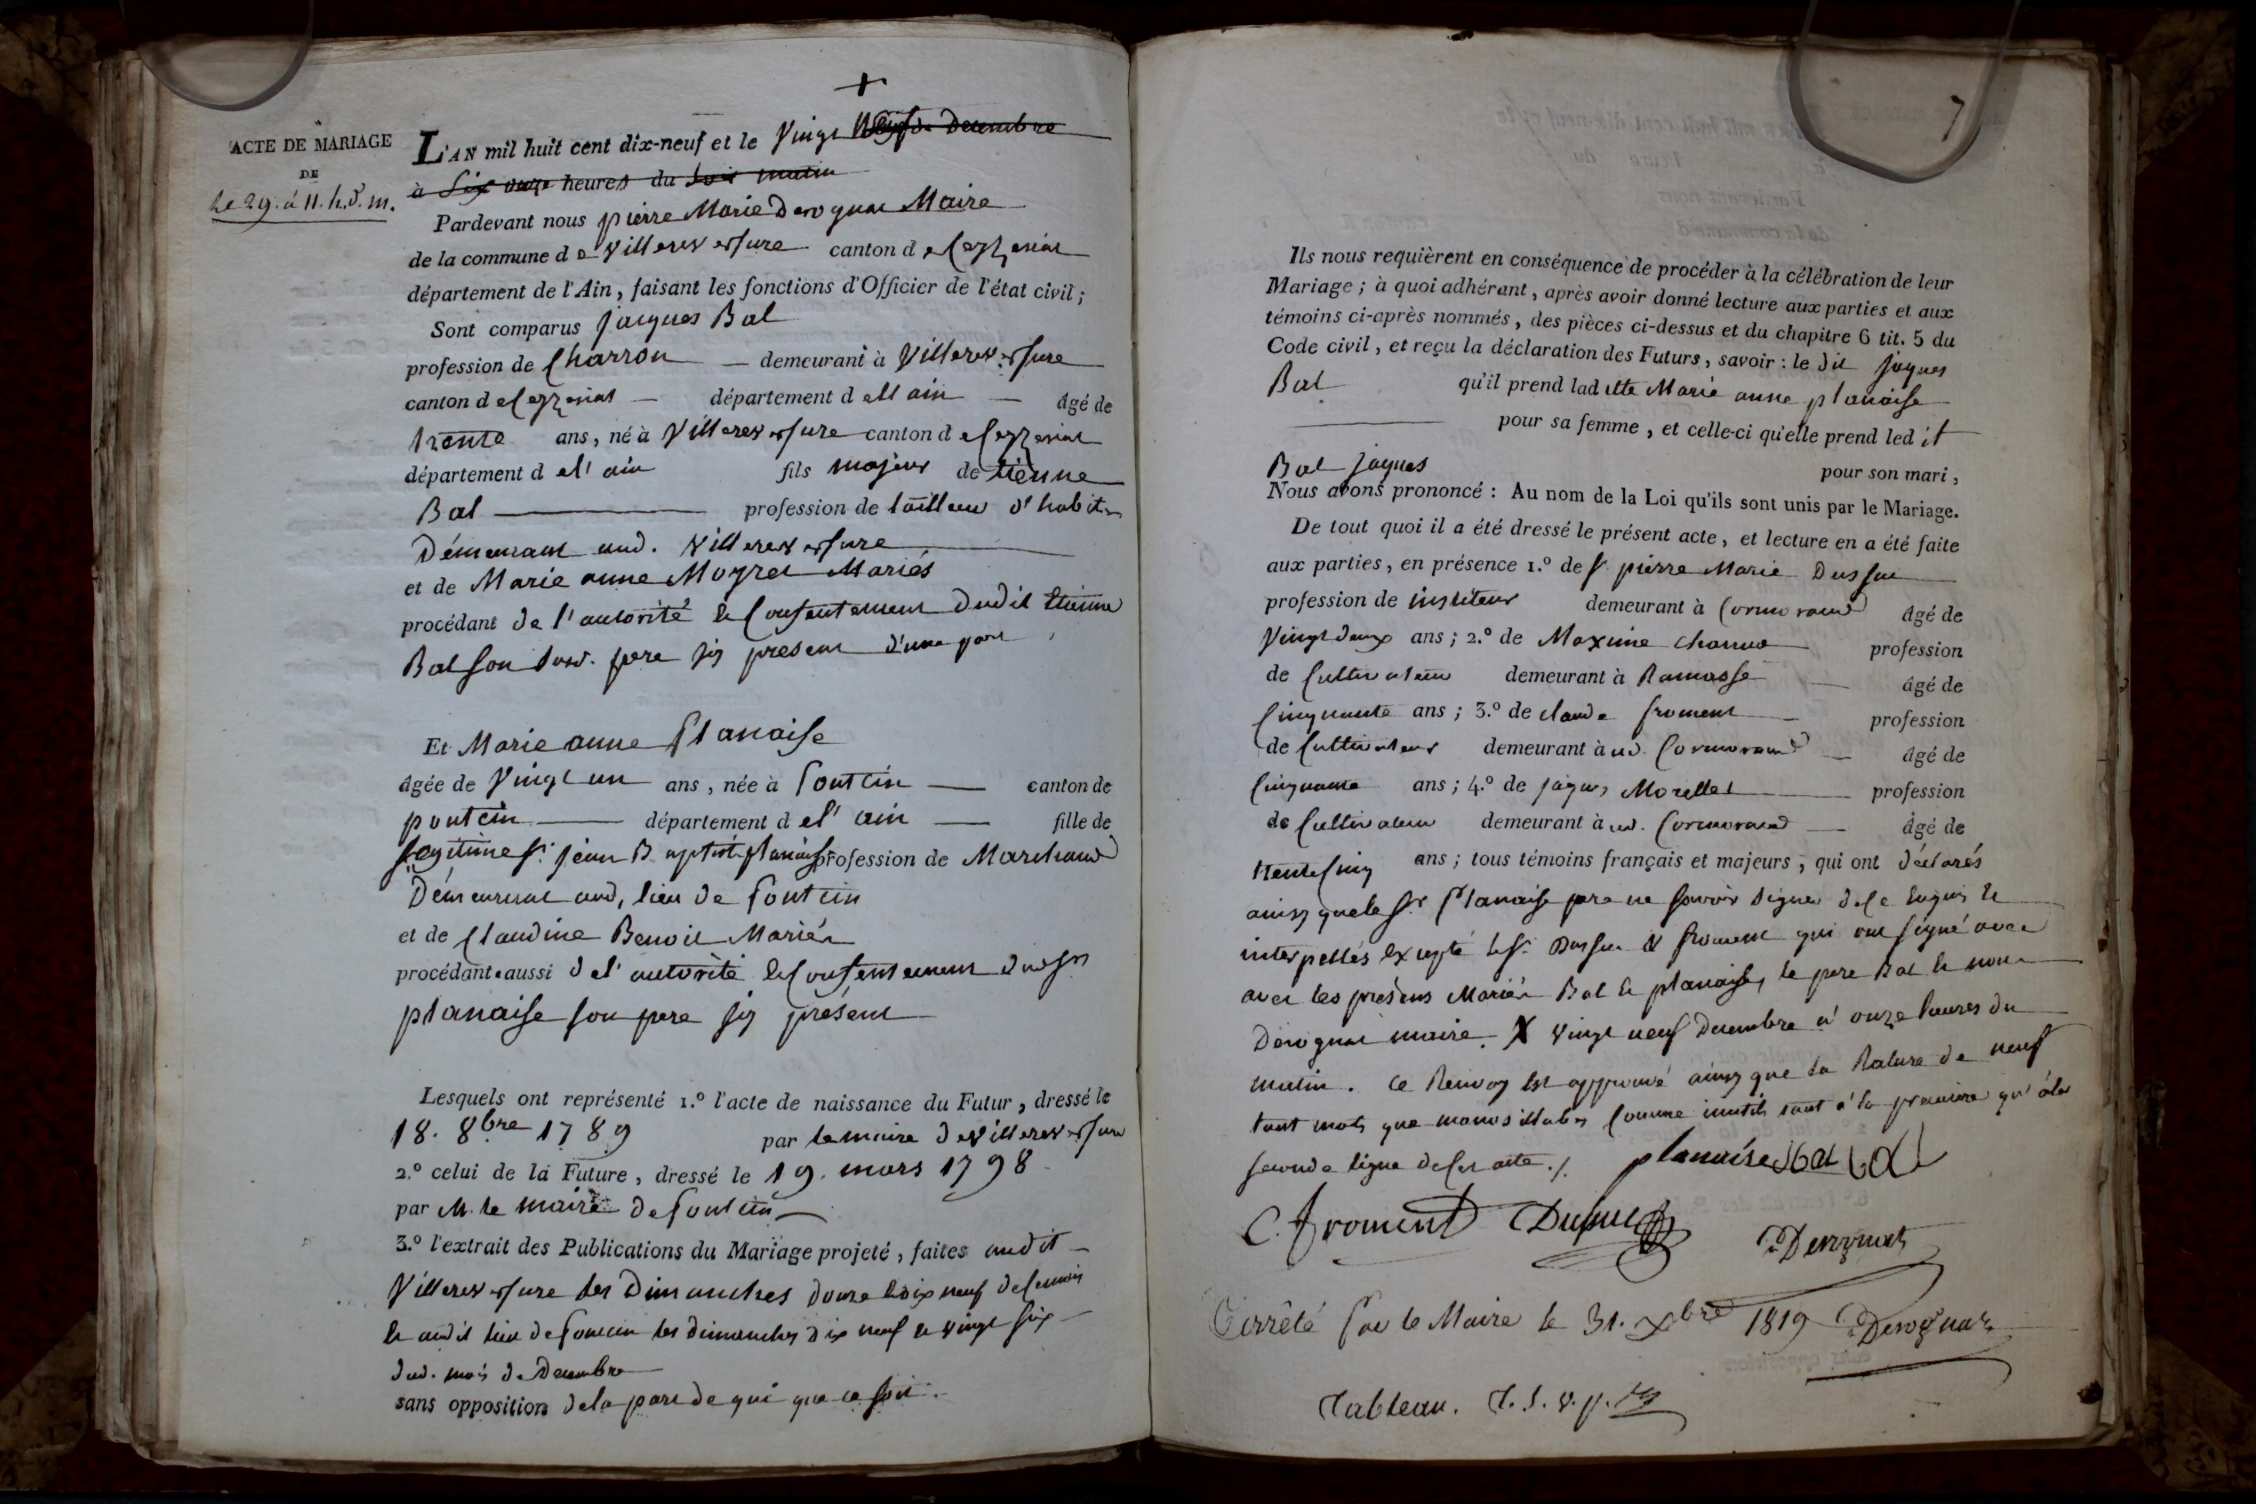 +
ACTE DE MARIAGE
DE
Le 29. à 11. h. d. m.
L'AN mil huit cent dix-neuf et le Vingt Neuf de Decembre
à Six onze heures du soir matin
Pardevant nous pierre Marie Derognat Maire
de la commune d e Villerevesure canton d e Cezzeriat
département de l'Ain, faisant les fonctions d'Officier de l'état civil;
Sont comparus Jacques Bal
profession de Charron demeurant à Villerevesure
canton d e Cezzeriat département d ell ain âgé de
trente ans, né à Villerevesure canton d e Cezzeriat
département d el' ain fils majeur de Etienne
Bal profession de tailleur d'habits
Démeurant aud. Villerevesure
et de Marie anne Moyret Mariés
procédant de l'autorité & Consentement dudit Etienne
Bal son pere jcy present d'une part
Et Marie anne planaise
âgée de Vingt un ans, née à Pontein canton de
pontein département d el' ain fille de
legitime Sr. jean Baptiste planaise profession de Marchand
Démeurant aud, lieu de Pontein
et de Claudine Benoit Mariés
procédant aussi d el' autorité & Consentement dud Sr
planaise son pere jcy présent
Lesquels ont représenté 1.º l'acte de naissance du Futur, dressé le
18. 8bre 1789 par le maire de Villerevesure
2.º celui de la Future, dressé le 19. mars 1798
par M. le maire de Pontein
3.º l'extrait des Publications du Mariage projeté, faites audit
Villerevesure les Dimanches douze & dix neuf de ce mois
& audit lieu de Poncin les dimanches dix neuf & vingt six
dud. mois de Decembre
sans opposition de la part de qui que ce soit.
7
Ils nous requièrent en conséquence de procéder à la célébration de leur
Mariage; à quoi adhérant, après avoir donné lecture aux parties et aux
témoins ci-après nommés, des pièces ci-dessus et du chapitre 6 tit. 5 du
Code civil, et reçu la déclaration des Futurs, savoir: le dit jaques
Bal qu'il prend lad itte Marie anne planaise
pour sa femme, et celle-ci qu'elle prend led it
Bal jaques pour son mari,
Nous avons prononcé: Au nom de la Loi qu'ils sont unis par le Mariage.
De tout quoi il a été dressé le présent acte, et lecture en a été faite
aux parties, en présence 1.º de Sr pierre Marie Dussue
profession de instituteur demeurant à Cormorand âgé de
Vingt deux ans; 2.º de Maxime profession
de Cultivateur demeurant à Ramasse âgé de
Cinquante ans; 3.º de claude froment profession
de Cultivateur demeurant à ud. Cormorand âgé de
Cinquante ans; 4.º de jaques Morellet profession
de Cultivateur demeurant à ud. Cormorand âgé de
trente Cinq ans; tous témoins français et majeurs, qui ont déclarés
ainsy que le Sr planaise pere ne savoir signer de ce enquis &
interpellés excepté le Sr. Dussue & froment qui ont signé avec
avec les presens Mariés Bal & planaise, le pere Bal & nous
Derognat maire. X vingt neuf Decembre à onze heures du
matin. Ce Renvoy est approuvé ainsy que la Rature de neuf
tant mots que monosillabes Comme inutils tant à la premiere qu'à la
seconde ligne de cet acte./. planaise Bal Bal
C. froment Dussue Derognat
Arrêté par le Maire le 31. Xbre 1819 Derognat
Tableau. T. S. V. p.